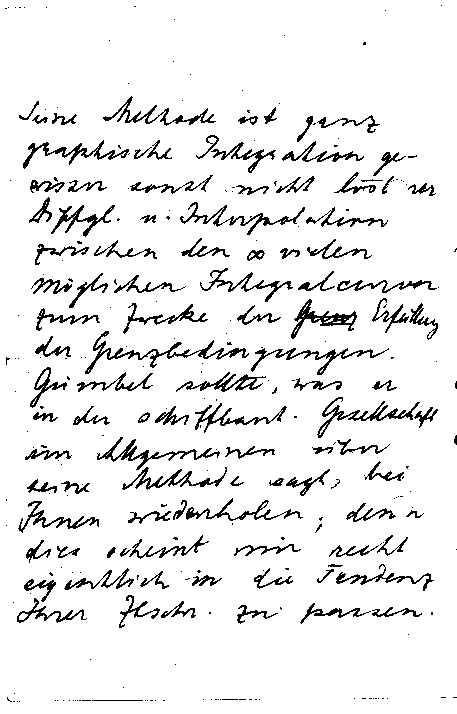 Seine Methode ist ganz
graphische Integration ge-
wisser sonst nicht lösb rer
Diffgl. u. Interpolation
zwischen den ∞ vielen
möglichen Integralcurven
zum Zwecke der Grenz Erfüllung
der Grenzbedingungen.
Gümbel sollte, was er
in der schiffbaut. Gesellschaft
im Allgemeinen über
seine Methode sagt, bei
Ihnen wiederholen, denn
dies scheint mir recht
eigentlich in die Tendenz
Ihrer Ztschr. zu passen.